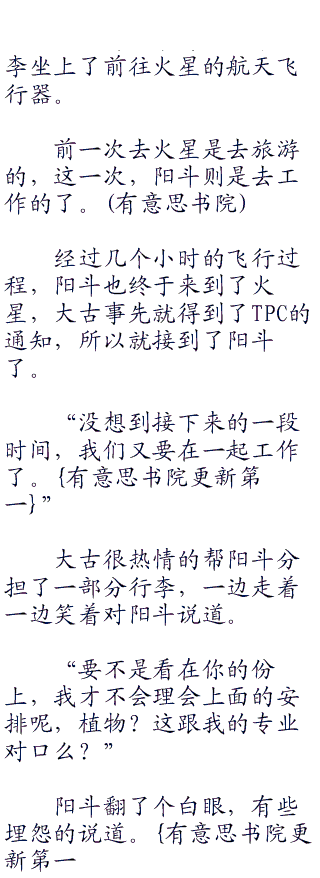 李坐上了前往火星的航天飞
行器。
前一次去火星是去旅游
的，这一次，阳斗则是去工
作的了。(有意思书院)
经过几个小时的飞行过
程，阳斗也终于来到了火
星，大古事先就得到了TPC的
通知，所以就接到了阳斗
了。
“没想到接下来的一段
时间，我们又要在一起工作
了。{有意思书院更新第
一}”
大古很热情的帮阳斗分
担了一部分行李，一边走着
一边笑着对阳斗说道。
“要不是看在你的份
上，我才不会理会上面的安
排呢，植物？这跟我的专业
对口么？”
阳斗翻了个白眼，有些
埋怨的说道。{有意思书院更
新第一